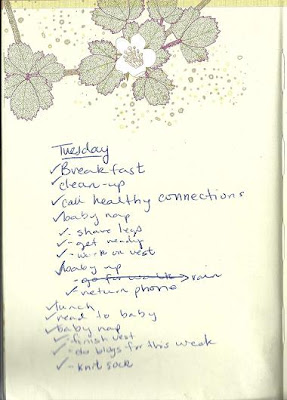 Tuesday
✓Breakfast
✓clean-up
✓call healthy connections
✓baby nap
✓- shave legs
✓- get ready
✓- work on vest
✓baby up
- go for walk → rain
✓return phone
✓lunch
✓read to baby
✓baby nap
✓- finish vest
✓- do blogs for this week
✓- knit sock